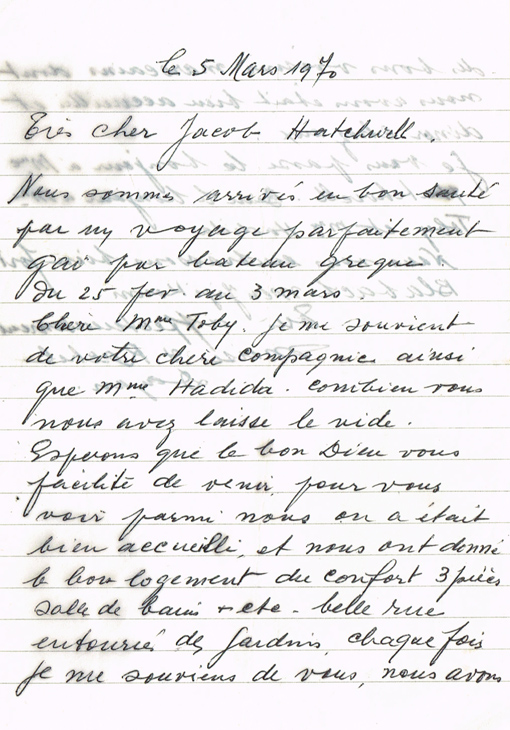 le 5 Mars 1970
Très cher Jacob Hatchwell.
Nous sommes arrivés en bon santé
par un voyage parfaitement
gai par bateau greque.
du 25 fev au 3 mars.
Chère Mme Toby. Je me souvient
de votre chere compagnie ainsi
que Mme Hadida. combien vous
nous avez laisse le vide.
Esperons que le bon Dieu vous
facilité de venir, pour vous
voir parmi nous on a était
bien accueilli, et nous ont donné
le bon logement du confort 3 pièces
salle de bains + etc - belle rue
entouriés de Jardins, chaque fois
je me souviens de vous, nous avons